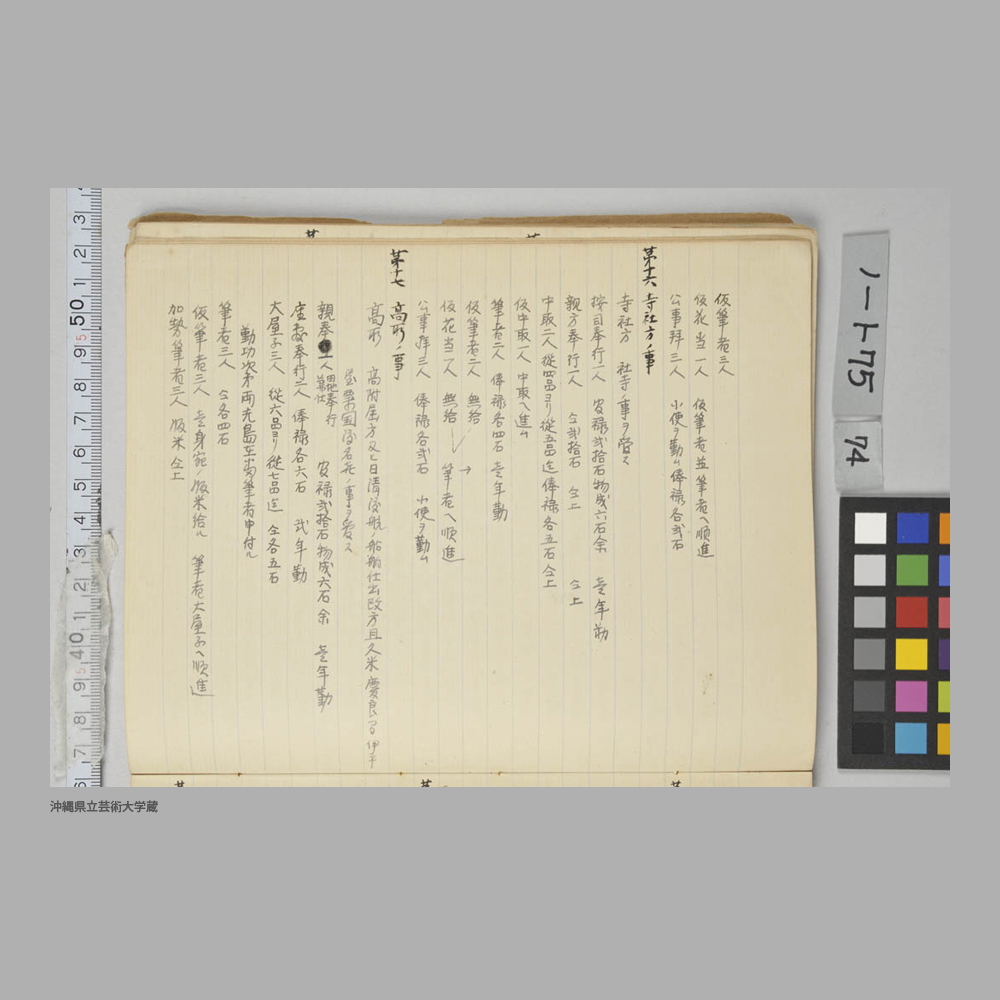 仮筆者三人
仮花当一人 仮筆者並筆者ヘ順進
公事拝三人 小使ヲ勤ム俸禄各弐石
第十六 寺社方ノ事
寺社方 社寺ノ事ヲ管ス
按司奉行一人 役禄弐拾石物成六石余 壱年勤
親方奉行一人 仝弐拾石 仝上 仝上
中取二人従四品ヨリ従五品迄俸禄各五石仝上
仮中取一人 中取ヘ進ム
筆者二人 俸禄各四石 壱年勤
仮筆者二人 無給
仮花当二人 無給 → 筆者ヘ順進
公事拝三人 俸禄各弐石 小使ヲ勤ム
第十七 高所ノ事
高所 高附届方又ハ日清渡航ノ船舶仕出改方且久米慶良間伊平
屋粟国渡名喜ノ事ヲ管ス
親奉行一人 役禄弐拾石物成六石余 壱年勤
奉行二人 俸禄各六石 弐年勤
大屋子三人 従六品ヨリ従七品迄 仝各五石
勤功次第両先島在番筆者申付ル
筆者三人 仝各四石
仮筆者三人 壱身宛ノ飯米給ル 筆者大屋子ヘ順進
加勢筆者三人 飯米仝上
ノート75
74
沖縄県立芸術大学蔵